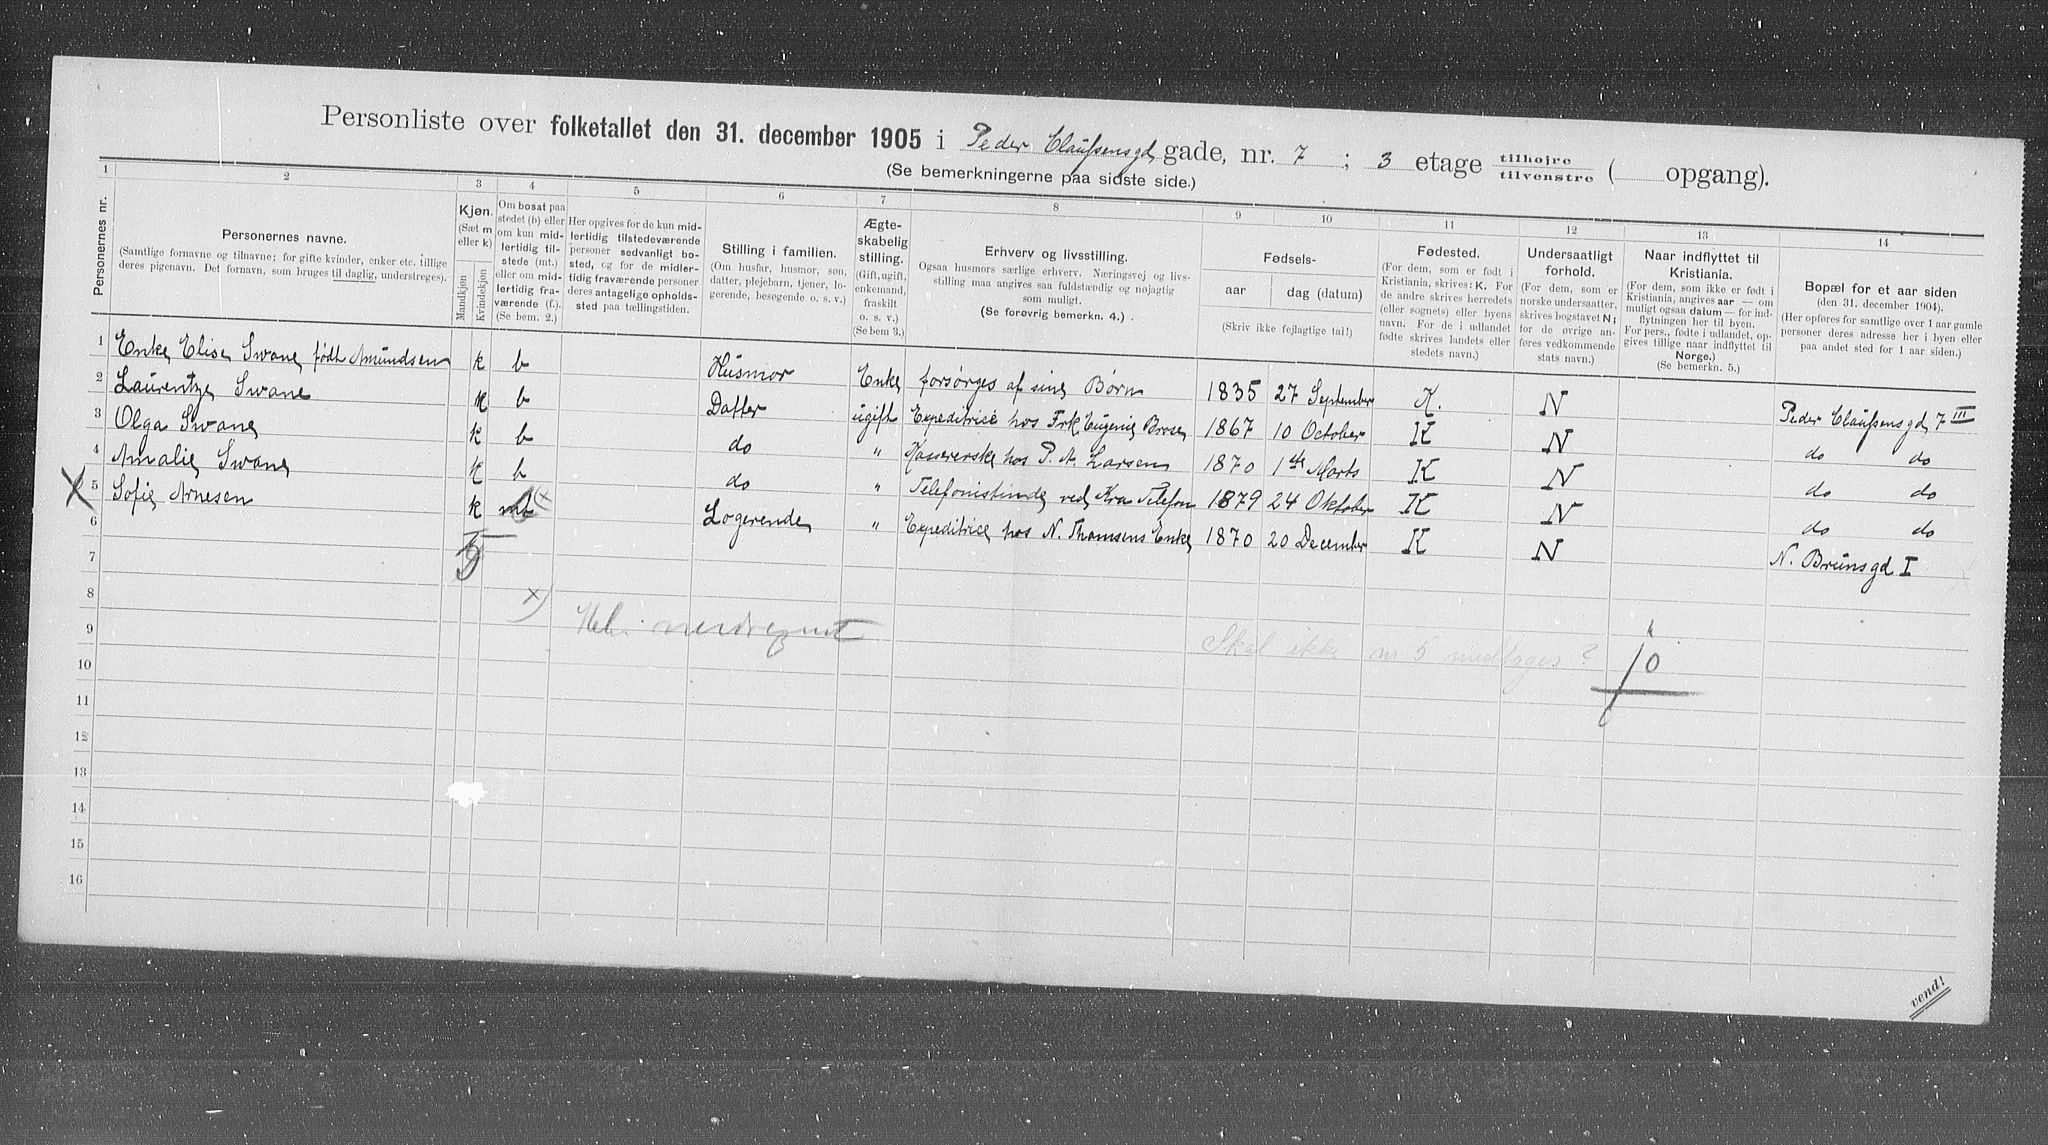 Personliste over folketallet den 31. december 1905 i Peder Claussensgd gade, nr. 7 ; 3 etage tilhøjre tilvenstre ( opgang).
(Se bemerkningerne paa sidste side.)
1 2 3 4 5 6 7 8 9 10 11 12 13 14
Personernes nr.
Personernes navne.
(Samtlige fornavne og tilnavne; for gifte kvinder, enker etc. tillige
deres pigenavn. Det fornavn, som bruges til daglig, understreges).
Kjøn.
(Sæt m
eller k)
Mandkjøn
Kvindekjøn
Om bosat paa
stedet (b) eller
om kun mid-
lertidig til-
stede (mt.)
eller om mid-
lertidig fra-
værende (f.).
(Se bem. 2.)
Her opgives for de kun mid-
lertidig tilstedeværende
personer sedvanlig bo-
sted, og for de midler-
tidig fraværende personer
deres antagelige opholds-
sted paa tællingstiden.
Stilling i familien.
(Om husfar, husmor, søn,
datter, plejebarn, tjener, lo-
gerende, besøgende o. s. v.)
Ægte-
skabelig
stilling.
(Gift, ugift,
enkemand,
fraskilt
o. s. v.)
(Se bem 3.)
Erhverv og livsstilling.
Ogsaa husmors særlige erhverv. Næringsvej og livs-
stilling maa angives saa fuldstændig og nøjagtig
som muligt.
(Se forøvrig bemerkn. 4.)
Fødsels-
aar dag (datum)
(Skriv ikke fejlagtige tal!)
Fødested.
(For dem, som er født i
Kristiania, skrives: K. For
de andre skrives herredets
(eller sognets) eller byens
navn. For de i udlandet
fødte skrives landets eller
stedets navn.)
Undersaatligt
forhold.
(For dem, som er
norske undersaatter,
skrives bogstavet N;
for de øvrige an-
føres vedkommende
stats navn.)
Naar indflyttet til
Kristiania.
(For dem, som ikke er født i
Kristiania, angives aar — om
muligt ogsaa datum — for ind-
flytningen her til byen.
For pers., fødte i udlandet, op-
gives tillige naar indflyttet til
Norge.)
(Se bemerkn. 5.)
Bopæl for et aar siden
(den 31. december 1904).
(Her opføres for samtlige over 1 aar gamle
personer deres adresse her i byen eller
paa andet sted for 1 aar siden.)
1 Enke Elise Swane født Amundsen k b Husmor Enke forsørges af sine Børn 1835 27 September K. N Peder Claussensgd 7 III
2 Laurentze Swane k b Datter ugift Expeditrice hos Frk Eugenie 1867 10 October K N do do
3 Olga Swane k b do " Kassererske hos P. A. Larsen 1870 1ste Marts K N do do
4 Amalie Swane k b do " Telefonistinde ved Kra Telefon 1879 24 Oktober K N do do
X 5 Sofie Arnesen k mt x) Logerende " Expeditrice hos N. Thomsens Enke 1870 20 December K N N. Brunsgd I
6
7 5
8 x)
9 Skal ikke nr 5 medtages?
10 10
11
12
13
14
15
16
vend!